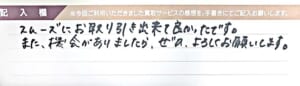 記入欄 ※今回ご利用いただきました買取サービスの感想を、手書きにてご記入お願いします。
スムーズにお取り引き出来て良かったです。
また、機会がありましたら、ぜひ、よろしくお願いします。